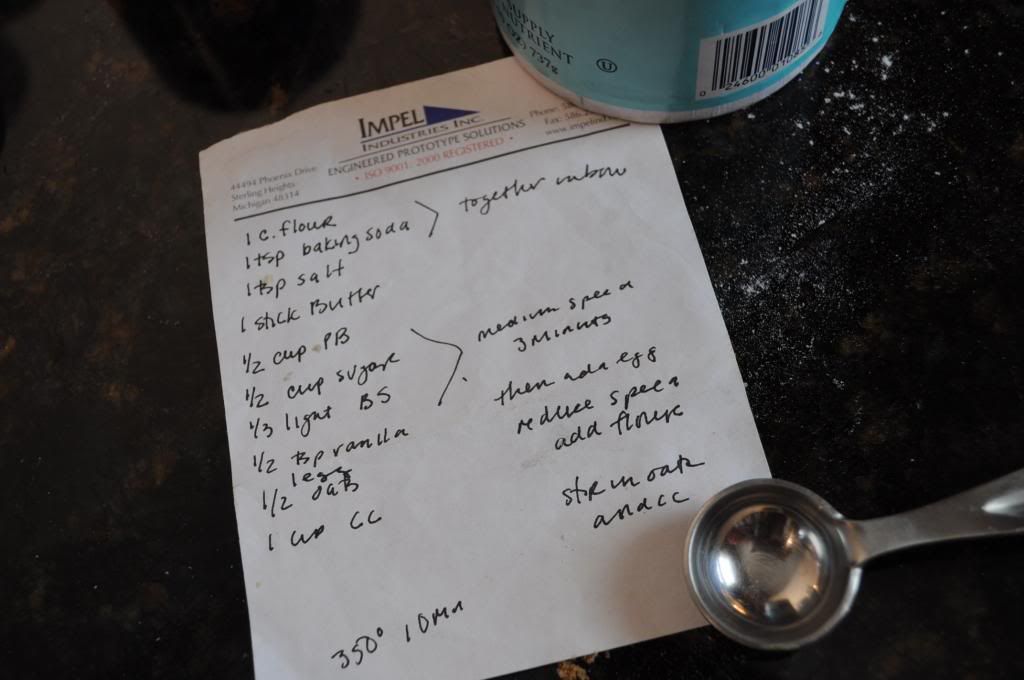 SUPPLY
NUTRIENT
737g
U
0 24600 01045
IMPEL
INDUSTRIES INC.
ENGINEERED PROTOTYPE SOLUTIONS
• ISO 9001: 2000 REGISTERED •
Phone: 58
Fax: 586
www.impelind
44494 Phoenix Drive
Sterling Heights
Michigan 48314
1 c. flour
1 tsp baking soda
together in bow
1 tsp salt
1 stick Butter
1/2 cup PB
medium speed
3 minuts
1/2 cup sugar
1/3 light BS
then add egg
reduce speed
add flour
1/2 tsp vanilla
1 egg
1/2 oats
stir in oats
and CC
1 cup CC
350° 10 mn